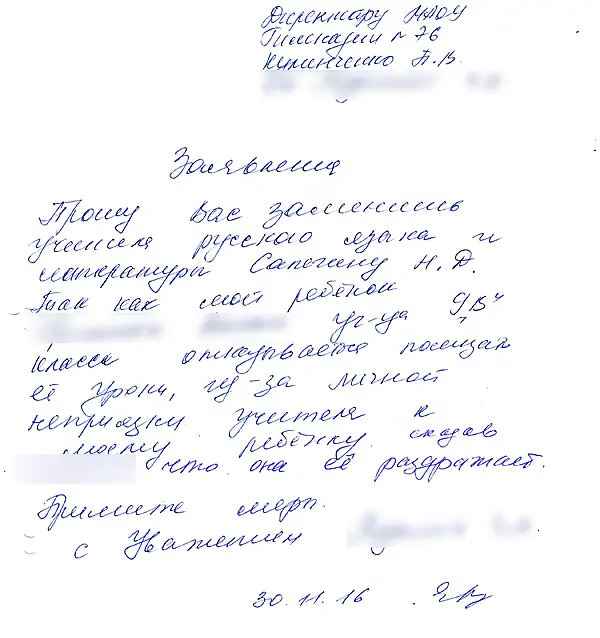 Директору МАОУ
Гимназии № 76
Килинченко П.В.
Заявления
Прошу Вас заменить
учителя русского языка и
литературы Сапегину Н.Д.
Так как мой ребёнок
уч-ца 9"В"
класса отказывается посещат
её уроки, из-за личной
неприязни учителя к
моему ребёнку сказав
что она её раздражает.
Примите меры.
с Уважением
30.11.16